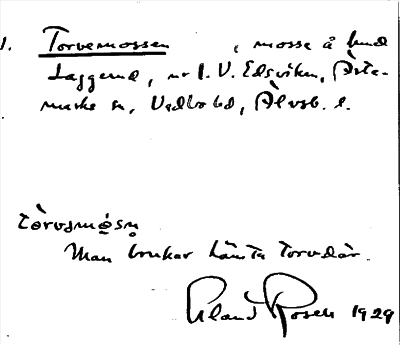 1. Torvemossen, mosse å hmd
Laggerud, nr 1. V. Edsviken, Årte-
marks sn, Vedbo hd, Älvsb. l.
tòrvamǫ́sn̥
Man brukar hämta torv där.
Erland Rosell 1929